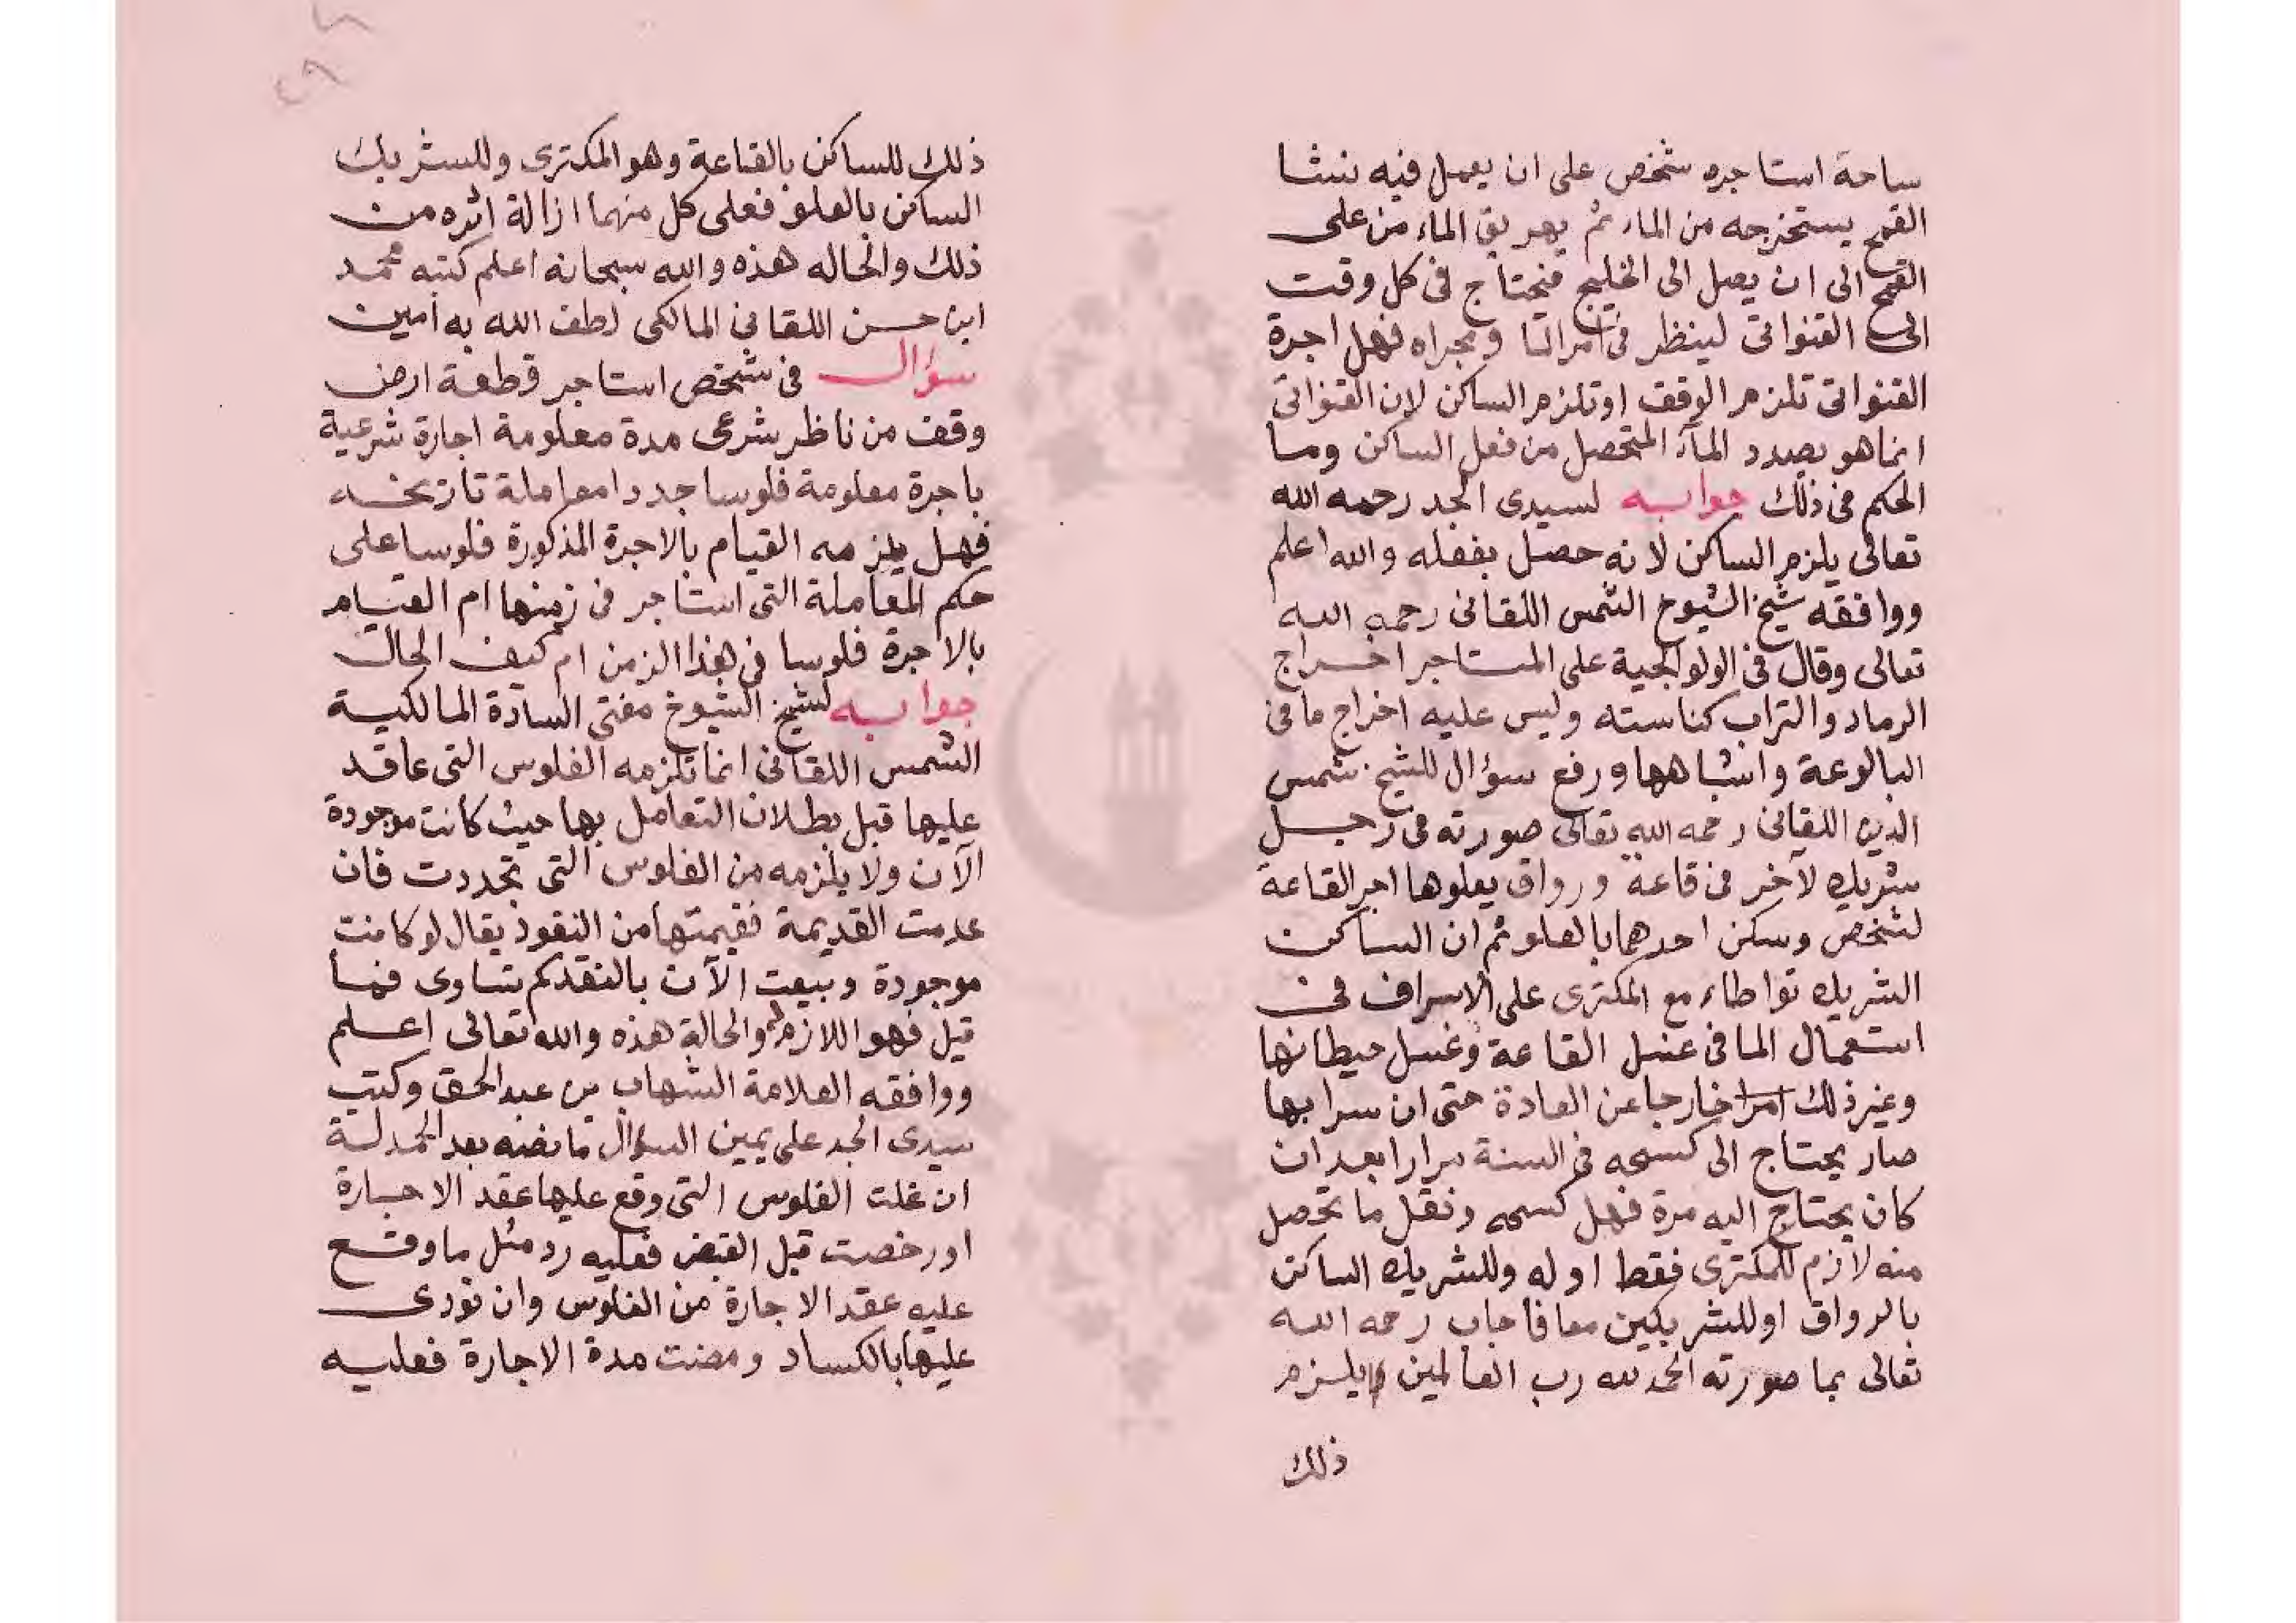 ساحة استاجره شخص على ان يعمل فيه نشا
القمح يستخرجه من الماء ثم يهريق الماء من على
القمح الى ان يصل الى الخليج فيحتاج فى كل وقت
الى القنواتى لينظر فى امر الما ومجراه فهل اجرة
القنواتى تلزم الوقف او تلزم الساكن لان القنواتى
انما هو بصدد المآء المتحصل من فعل الساكن وما
الحكم فى ذلك جوابه لسيدى الجد رحمه الله
تعالى يلزم الساكن لانه حصل بفعله والله اعلم
ووافقه شيخ الشيوخ الشمس اللقانى رحمه الله
تعالى وقال فى الولوالجية على المستاجر اخراج
الرماد والتراب كناسته وليس عليه اخراج ما فى
البالوعة واشباهها ورفع سؤال للشيخ شمس
الدين اللقانى رحمه الله تعالى صورته فى رجل
شريك لآخر فى قاعة ورواق يعلوها اجر القاعة
لشخص وسكن احدهما بالعلو ثم ان الساكن
الشريك تواطاء مع المكترى على الاسراف فى
استعمال الما فى غسل القاعة وغسل حيطانها
وغير ذلك امرا خارجا عن العادة حتى ان سرابها
صار يحتاج الى كسحه فى السنة مرارا بعد ان
كان يحتاج اليه مرة فهل كسحه ونقل ما تحصل
منه لازم للمكترى فقط او له وللشريك الساكن
بالرواق او للشريكين معا فاجاب رحمه الله
تعالى بما صورته الحمد لله رب العالمين يلزم
ذلك
ذلك للساكن بالقاعة وهو المكترى وللشريك
الساكن بالعلو فعلى كل منهما ازالة اثره من
ذلك والحاله هذه والله سبحانه اعلم كتبه محمد
ابن حسن اللقانى المالكى لطف الله به امين
سؤال فى شخص استاجر قطعة ارض
وقف من ناظر شرعى مدة معلومة اجارة شرعية
باجرة معلومة فلوسا جددا معاملة تاريخه
فهل يلزمه القيام بالاجرة المذكورة فلوسا على
حكم المعاملة التى استاجر فى زمنها ام القيام
بالاجرة فلوسا فى هذا الزمن ام كيف الحال
جوابه لشيخ الشيوخ مفتى السادة المالكية
الشمس اللقانى انما تلزمه الفلوس التى عاقد
عليها قبل بطلان التعامل بها حيث كانت موجودة
الآن ولا يلزمه من الفلوس التى تجددت فان
عدمت القديمة فقيمتها من النقود يقال لو كانت
موجودة وبيعت الآن بالنقد كم تساوى فما
قيل فهو اللازم والحالة هذه والله تعالى اعلم
ووافقه العلامة الشهاب بن عبد الحق وكتب
سيدى الجد على يمين السؤال ما نصه بعد الحمدلة
ان غلت الفلوس التى وقع عليها عقد الاجارة
او رخصت قبل القبض فعليه رد مثل ما وقع
عليه عقد الاجارة من الفلوس وان نودى
عليها بالكساد ومضت مدة الاجارة فعليه